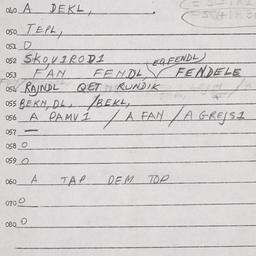 040 A DEKL,
050 TEPL,
051 O
052 SKOVIRODI (EQ FENDL)
053 FAN FENDL, FENDELE
054 RAJNDL QET RUNDIK
055 BEKN, DL, /BEKL,
056 A PAMVI / A FAN / A GREJSI
057 —
058 O
059 O
060 A TAP DEM TOP
070 O
080 O